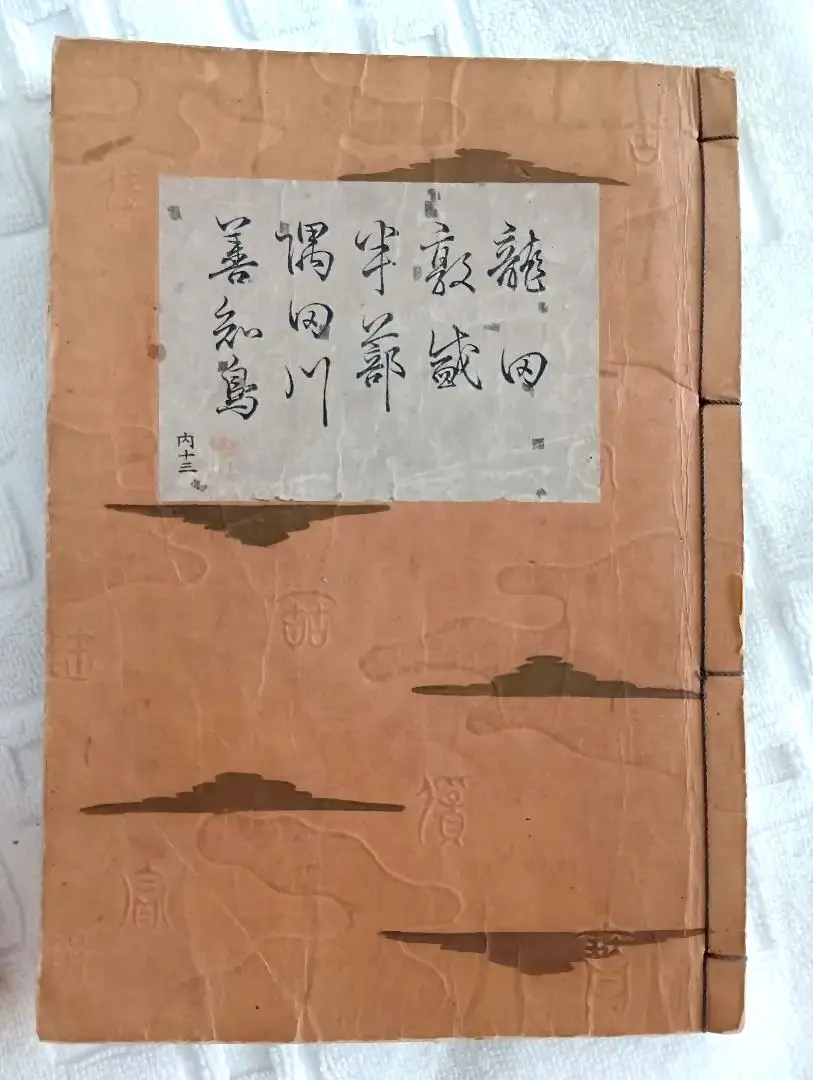 龍田
敦盛
半蔀
隅田川
善知鳥
内十三